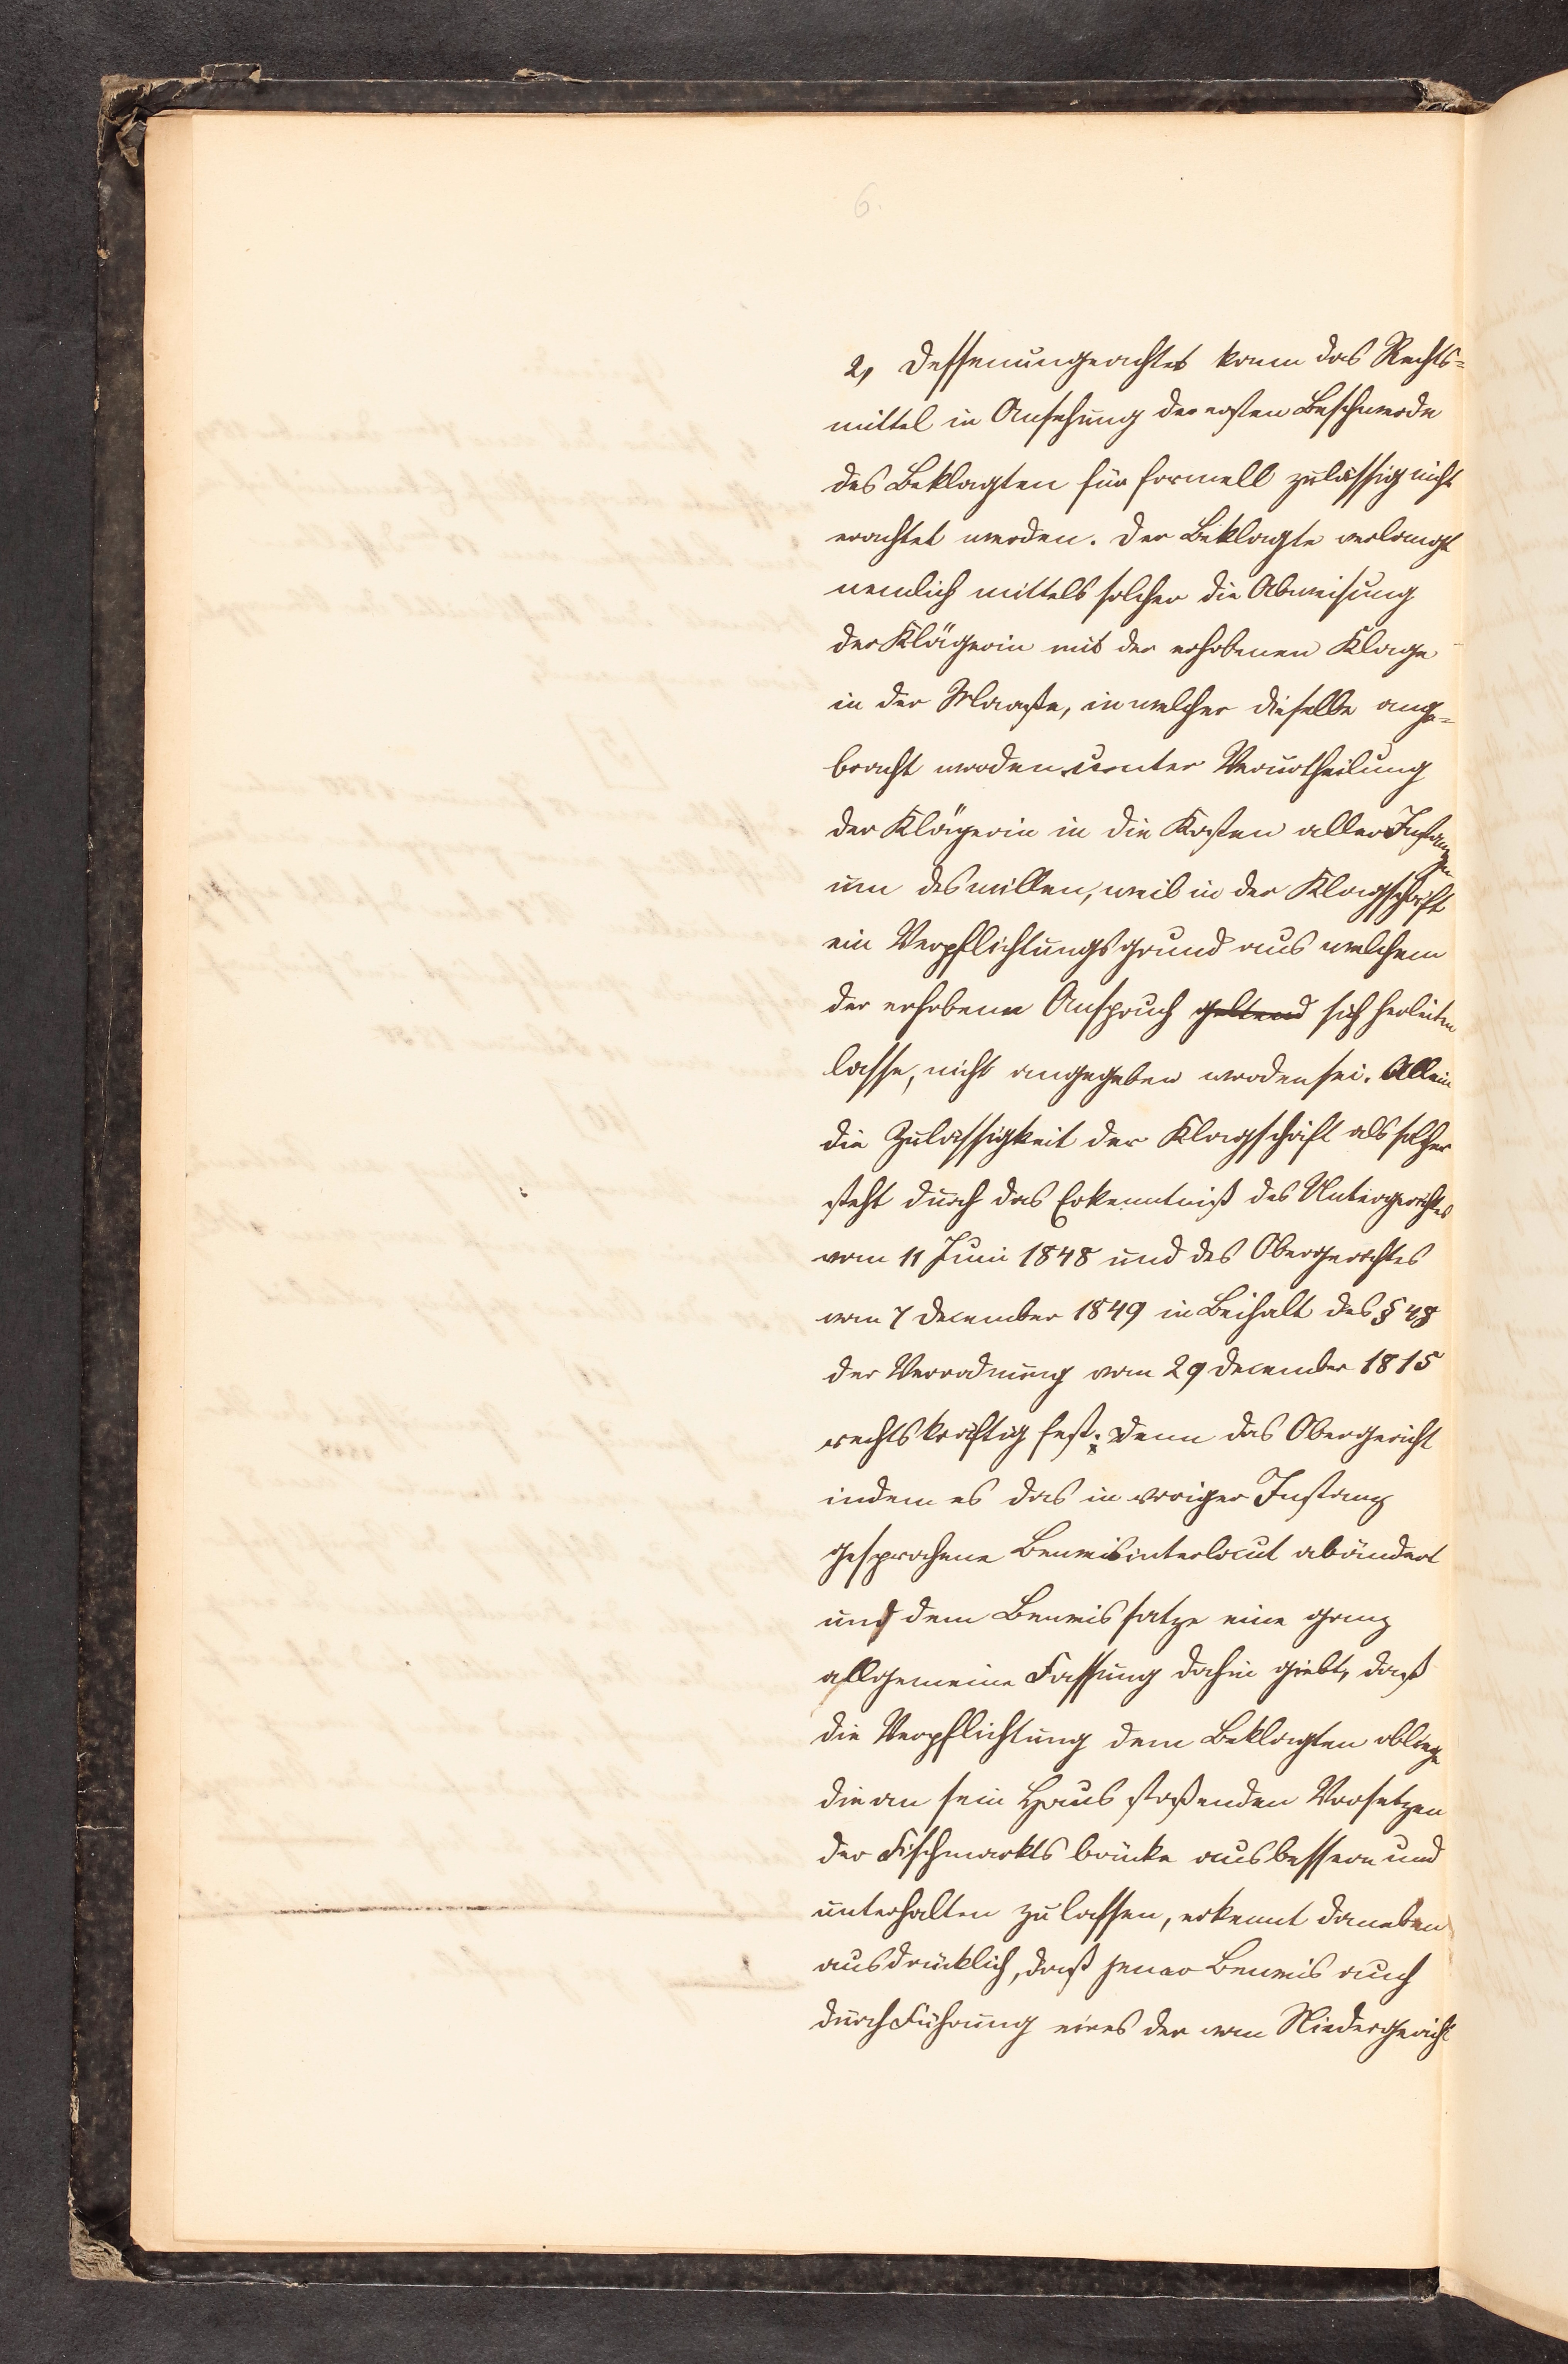 6.
2, Dessenungeachtet kann das Rechts=
mittel in Ansehung der ersten Beschwerde
des Beklagten für formell zulässig nicht
erachtet werden. Der Beklagte verlangt
nemlich mittels solcher die Abweisung
der Klägerin mit der erhobenen Klage
in der Maaße, in welcher dieselbe ange=
bracht worden unter Verurtheilung
der Klägerin in die Kosten aller Instanzen
um deswillen, weil in der Klagschrift
ein Verpflichtungsgrund aus welchem
der erhobene Anspruch geltend sich herleiten
lasse, nicht angegeben worden sei. Allein
die Zulässigkeit der Klagschrift als solcher
steht durch das Erkenntniß des Untergerichtes
vom 11 Juni 1848 und des Obergerichtes
vom 7 December 1849 in Beihalt des § 48
der Verordnung vom 29 December 1815
rechtskräftig fest; denn das Obergericht
indem es das in voriger Instanz
gesprochene Beweisinterlocut abändert
und dem Beweissatze eine ganz
allgemeine Fassung dahin giebt, daß
die Verpflichtung dem Beklagten obliege
die an sein Haus stoßenden Vorsetzen
der Fischmarktsbrücke ausbessern und
unterhalten zu lassen, erkennt daneben
ausdrücklich, daß jener Beweis auch
durch Führung eines der vom Niedergericht